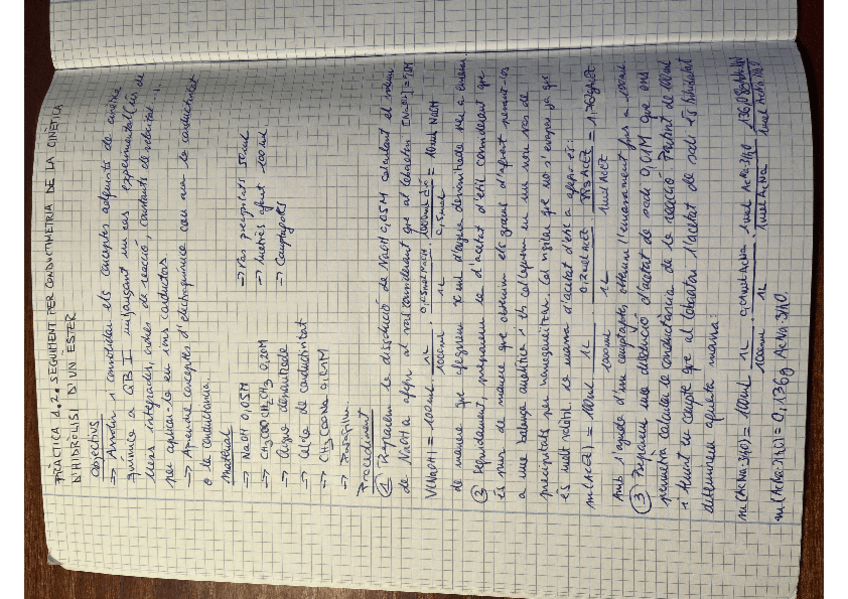 PRÀCTICA 1.2: SEGUIMENT PER CONDUCTIMETRIA DE LA CINÈTICA
D'HIDRÒLISI D'UN ÈSTER.
Objectius
→ Assolir i consolidar els conceptes adquirits de cinètica
química a QB I mitjançant un cas experimental (lleis de
lleis integrades, ordres de reacció, constants de velocitat...
per aplicar-lo en ions conductors.
→ Aprendre conceptes d'electroquímica com ara la conductivitat
o la conductància.
Material
→ NaOH 0,05M → Vas precipitats 50 ml
→ CH3COOCH2CH3 0,20M → Matràs aforat 100 ml
→ Aigua desionitzada → Comptagotes
→ Cel·la de conductivitat
→ CH3COONa 0,01M
→ Parafilm.
Procediment
① Preparem la dissolució de NaOH 0,05M calculant el volum
de NaOH a afegir al vas considerant que al laboratori [NaOH]=0,5M
V(NaOH) = 100ml · 1L/1000ml · 0,05mol NaOH/1L · 1000ml/0,5mol = 10ml NaOH
de manera que afegirem x ml d'aigua desionitzada fins a enrasar.
② Seguidament, preparem la d'acetat d'etil considerant que
és pur de manera que obtenim els grams d'aforat pesant-los
a una balança analítica i els col·loquem en un nou vas de
precipitats per homogeneïtzar. Cal vigilar que no s'evapori ja que
és molt volàtil. La massa d'acetat d'etil a afegir és:
m(AcEt) = 100ml · 1L/1000ml · 0,2mol AcEt/1L · 88g AcEt/1mol AcEt = 1,76g AcEt
Amb l'ajuda d'un comptagotes, obtenim l'enrasament fins a 100ml
③ Preparem una dissolució d'acetat de sodi 0,01M que ens
permetrà calcular la conductància de la reacció partint de 100ml
i tenint en compte que al laboratori l'acetat de sodi és hidratat
determinem aquesta massa:
m(AcNa·3H2O) = 100ml · 1L/1000ml · 0,01mol AcNa/1L · 1mol AcNa·3H2O/1mol AcNa · 136,08g AcNa·3H2O/1mol AcNa·3H2O
m(AcNa·3H2O) = 0,136g AcNa·3H2O.